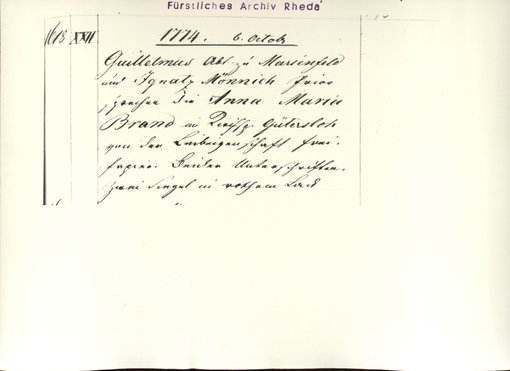 Fürstliches Archiv Rheda
1618 XXII 1774. 6. Octob
Guillelmus Abt zu Marienfeld
und Ignatz Mönnich Prior
sprechen die Anna Maria
Brand im Kirchsp. Gütersloh
von der Leibeigenschaft frei.
Papier. Beider Unterschriften.
zwei Siegel in rothem Lack